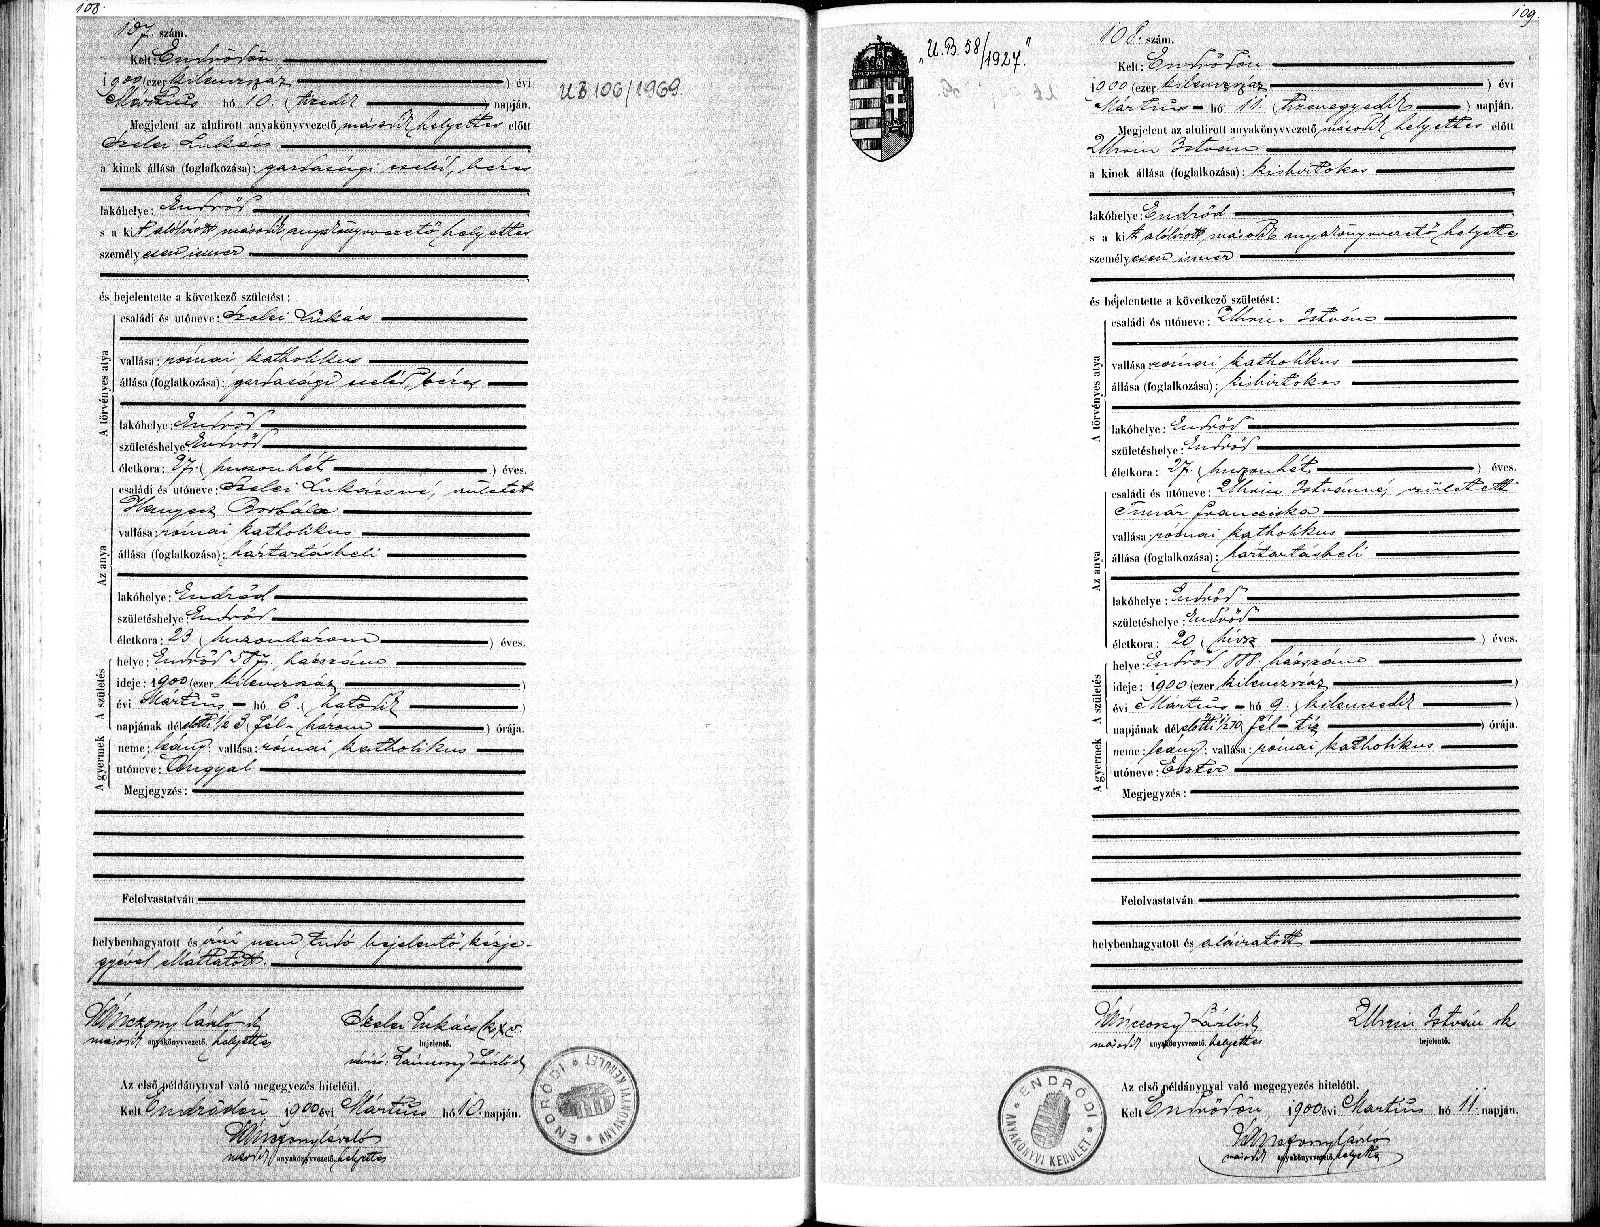 108.
107. szám.
Kelt: Endrődön
1900 (ezer kilenczszáz ) évi
Mártius hó 10. (tizedik ) napján.
Megjelent az alulirott anyakönyvvezető második helyettes előtt
Szelei Lukács
a kinek állása (foglalkozása): gazdasági cseléd, béres
lakóhelye: Endrőd
s a kit alólirott második anyakönyvvezető helyettes
személyesen ismer
és bejelentette a következő születést:
A törvényes atya
családi és utóneve: Szelei Lukács
vallása: római katholikus
állása (foglalkozása): gazdasági cseléd, béres
lakóhelye: Endrőd
születéshelye: Endrőd
életkora: 27. (huszonhét ) éves.
Az anya
családi és utóneve: Szelei Lukácsné, született
Hanyecz Borbála
vallása: római katholikus
állása (foglalkozása): háztartásbeli
lakóhelye: Endrőd
születéshelye: Endrőd
életkora: 23 (huszonhárom ) éves.
A születés
helye: Endrőd 507. házszám
ideje: 1900 (ezer kilenczszáz )
évi Mártius hó 6. (hatodik )
napjának délelőtti ½ 3 (fél-három ) órája.
A gyermek
neme: leány; vallása: római katholikus
utóneve: Angyal
Megjegyzés:
Felolvastatván
helybenhagyatott és irni nem tudó bejelentő kézje-
gyével elláttatott.
Vánczony László
második anyakönyvvezető, helyettes
Szelei Lukács k x v.
bejelentő.
névíró: László
Az első példánynyal való megegyezés hiteléül.
Kelt Endrődön 1900 évi Mártius hó 10. napján.
második anyakönyvvezető, helyettes
ENDRŐDI ANYAKÖNYVI KERÜLET
UB 106/1969
109.
"U.B 58/1927."
108. szám.
Kelt: Endrődön
1900 (ezer kilenczszáz ) évi
Mártius hó 11. (tizenegyedik ) napján.
Megjelent az alulirott anyakönyvvezető második helyettes előtt
Uhrin István
a kinek állása (foglalkozása): kisbirtokos
lakóhelye: Endrőd
s a kit alólirott második anyakönyvvezető helyette
személyesen ismer
és bejelentette a következő születést:
A törvényes atya
családi és utóneve: Uhrin István
vallása: római katholikus
állása (foglalkozása): kisbirtokos
lakóhelye: Endrőd
születéshelye: Endrőd
életkora: 27. (huszonhét ) éves.
Az anya
családi és utóneve: Uhrin Istvánné, született
Francziska
vallása: római katholikus
állása (foglalkozása): háztartásbeli
lakóhelye: Endrőd
születéshelye: Endrőd
életkora: 20 (húsz ) éves.
A születés
helye: Endrőd házszám
ideje: 1900 (ezer kilenczszáz )
évi Mártius hó 9. (kilenczedik )
napjának délelőtti ½10 (fél-tíz ) órája.
A gyermek
neme: leány; vallása: római katholikus
utóneve: Eszter
Megjegyzés:
Felolvastatván
helybenhagyatott és aláiratott
Vánczony László
második anyakönyvvezető, helyettes
Uhrin István sk
bejelentő.
Az első példánynyal való megegyezés hiteléül.
Kelt Endrődön 1900 évi Mártius hó 11. napján.
második anyakönyvvezető, helyettes
ENDRŐDI ANYAKÖNYVI KERÜLET